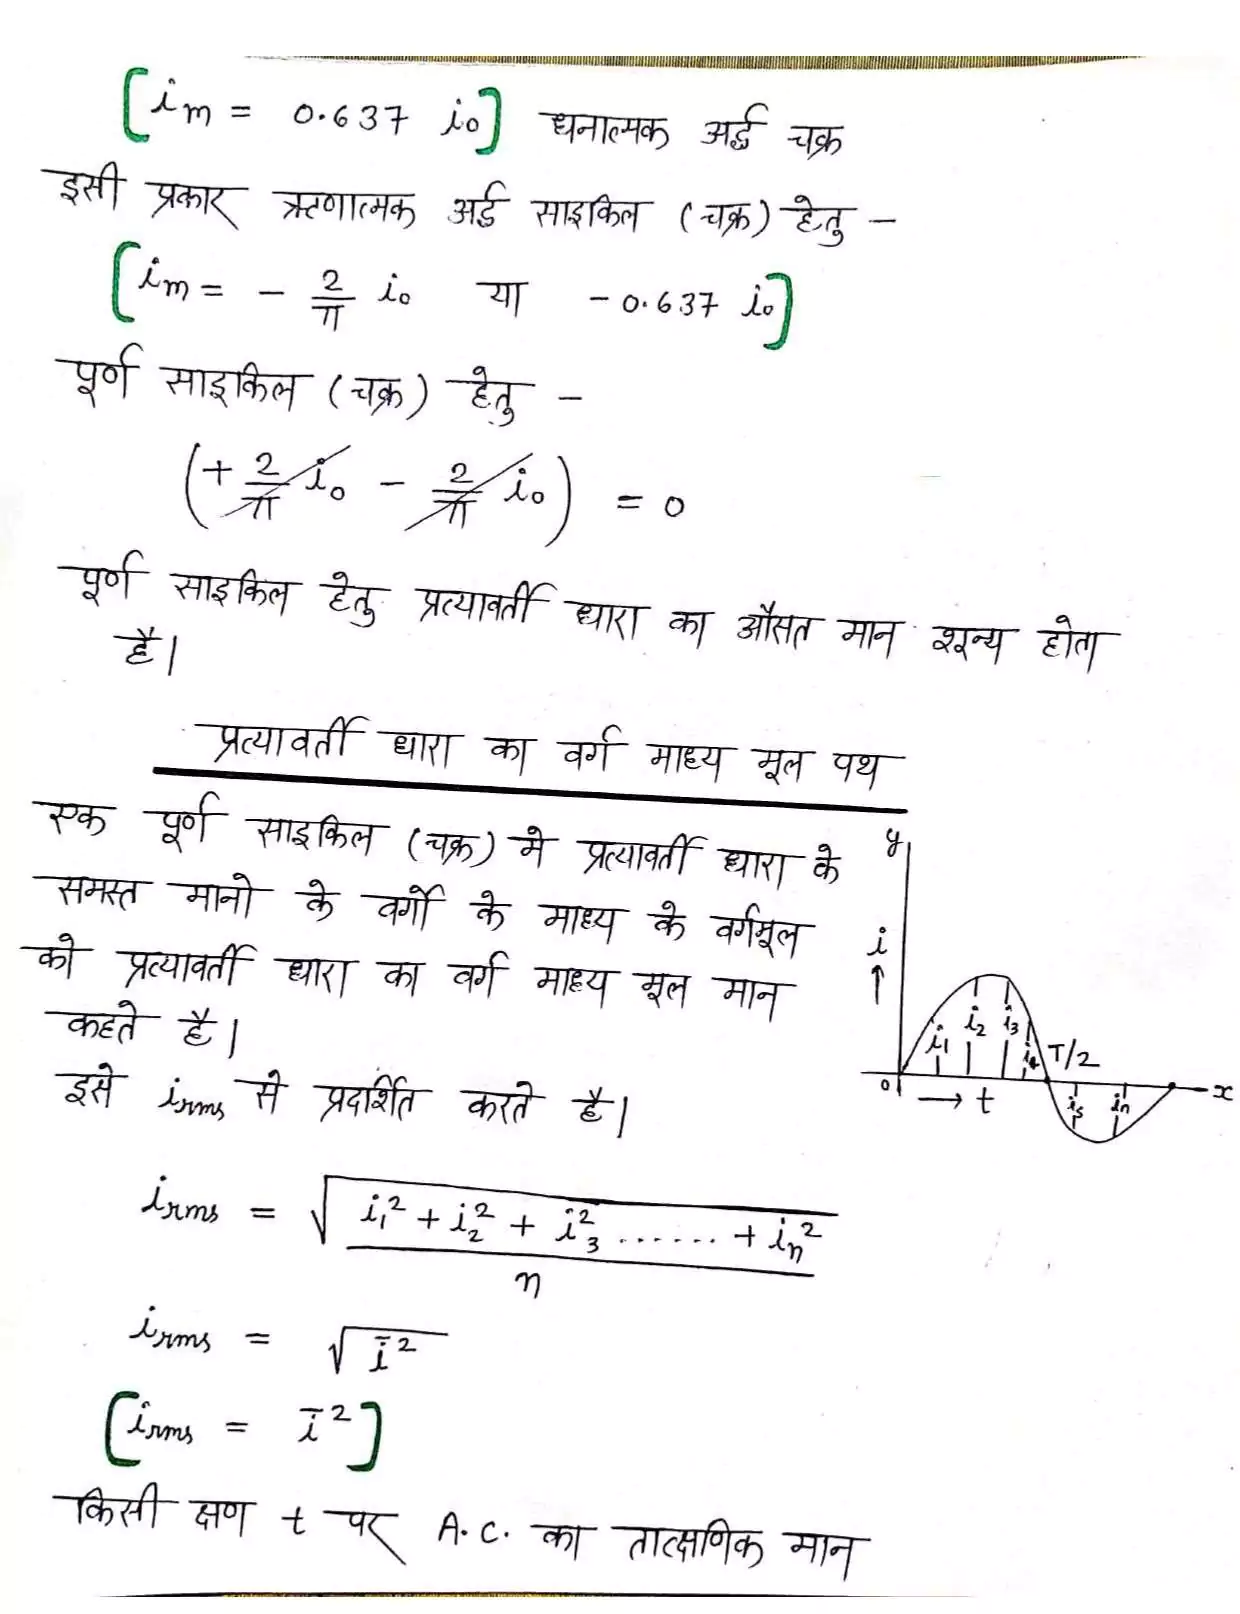 [im = 0.637 i₀] धनात्मक अर्द्ध चक्र
इसी प्रकार ऋणात्मक अर्द्ध साइकिल (चक्र) हेतु -
[im = - 2/π i₀ या - 0.637 i₀]
पूर्ण साइकिल (चक्र) हेतु -
(+ 2/π i₀ - 2/π i₀) = 0
पूर्ण साइकिल हेतु प्रत्यावर्ती धारा का औसत मान शून्य होता
है।
प्रत्यावर्ती धारा का वर्ग माध्य मूल पथ
एक पूर्ण साइकिल (चक्र) मे प्रत्यावर्ती धारा के
समस्त मानो के वर्गो के माध्य के वर्गमूल
को प्रत्यावर्ती धारा का वर्ग माध्य मूल मान
कहते है।
इसे irms से प्रदर्शित करते है।
y
i
↑
i₁ i₂ i₃ i₄ T/2
0 → t i₅ in x
irms = √(i₁² + i₂² + i₃² ....... + in² / n)
irms = √ī²
[irms = ī²]
किसी क्षण t पर A.C. का तात्क्षणिक मान